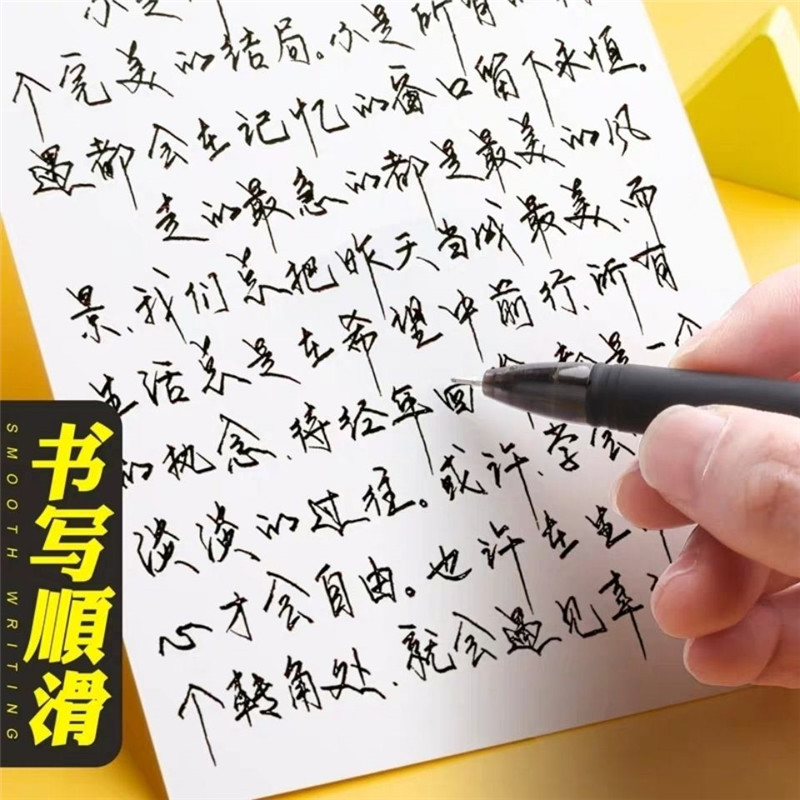 不是所有的
个完美的结局。不是所有的
遇都会在记忆的窗口留下永恒。
走的最急的都是最美的风
景、我们总把昨天当成最美、而
生活总是在希望中前行、所有
的执念、待经年回 都是一个
淡淡的过往。或许、学会
心才会自由。也许在生
个转角处、就会遇见幸
书写順滑
SMOOTH WRITING